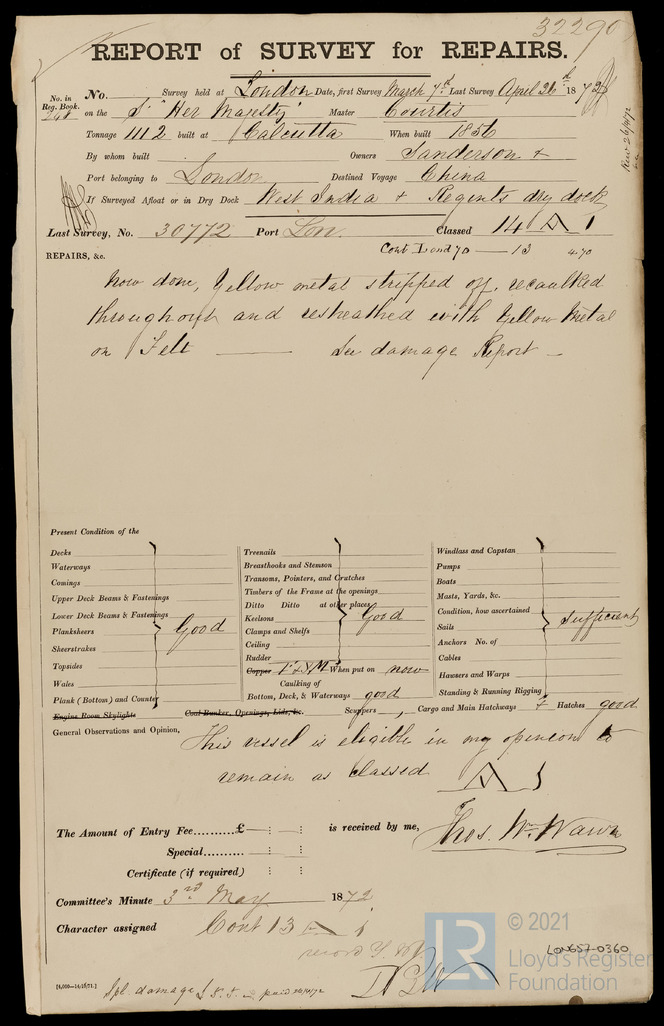 32290
REPORT of SURVEY for REPAIRS.
No. in Reg. Book. No. Survey held at London Date, first Survey March 7th Last Survey April 26th 1872
on the S. "Her Majesty" Master Courtis
Tonnage 1112 built at Calcutta When built 1856
By whom built Owners Sanderson +
Port belonging to London Destined Voyage China
If Surveyed Afloat or in Dry Dock West India + Regents dry dock
Last Survey, No. 30772 Port Lon. Classed 14 A 1
Cont Lond 70 — 13 4.70
REPAIRS, &c.
Now done, Yellow metal stripped off, recaulked
throughout and resheathed with Yellow Metal
on Felt — See damage Report —
Present Condition of the
Decks
Waterways
Comings
Upper Deck Beams & Fastenings
Lower Deck Beams & Fastenings
Planksheers Good
Sheerstrakes
Topsides
Wales
Plank (Bottom) and Counter
Engine Room Skylights
Treenails
Breasthooks and Stemson
Transoms, Pointers, and Crutches
Timbers of the Frame at the openings
Ditto Ditto at other places
Keelsons Good
Clamps and Shelfs
Ceiling
Rudder
Copper F & YM When put on now
Caulking of
Bottom, Deck, & Waterways good
Coal Bunker, Openings, Lids, &c.
Windlass and Capstan
Pumps
Boats
Masts, Yards, &c.
Condition, how ascertained
Sails sufficient
Anchors No. of
Cables
Hawsers and Warps
Standing & Running Rigging
Scuppers , Cargo and Main Hatchways + Hatches good
General Observations and Opinion, This vessel is eligible in my opinion to
remain as classed A 1
The Amount of Entry Fee..........£ : : is received by me,
Special.......... : :
Thos. Wm. Wawn
Certificate (if required) : :
Committee's Minute 3rd May 1872
Character assigned Cont 13 A 1
record
© 2021
Lloyd's Register
Foundation
LR
LON657-0360
Spl. damage paid 26/4/72